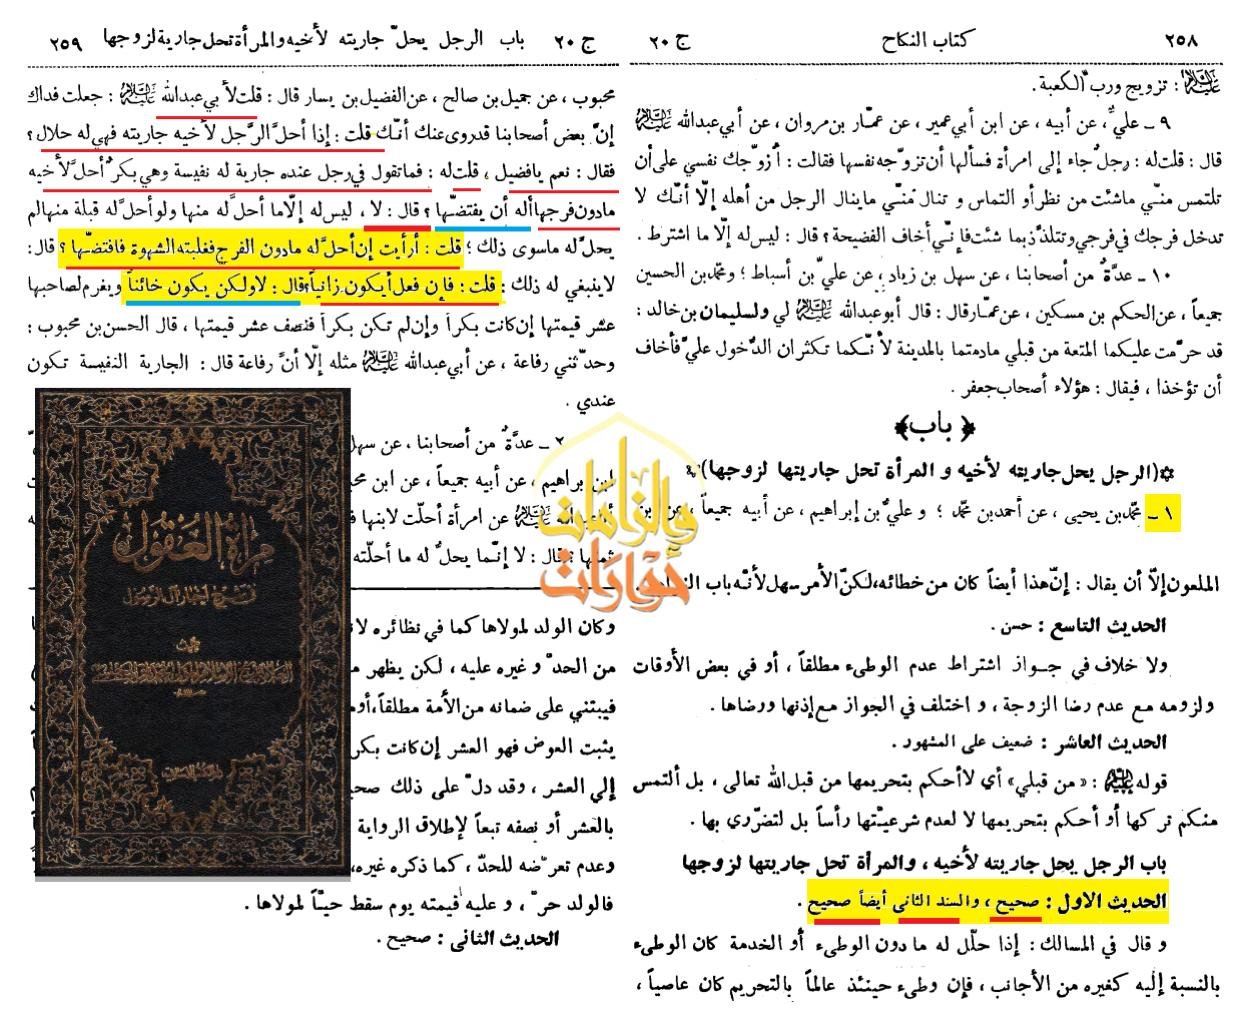 ٢٥٨
كتاب النكاح
ج ٢٠
عليه السلام : تزويج ورب الكعبة.
٩ ـ عليٌّ، عن أبيه، عن ابن أبي عمير، عن عمّار بن مروان، عن أبي عبدالله عليه السلام
قال: قلت له: رجلٌ جاء إلى امرأة فسألها أن تزوّجه نفسها فقالت: أزوّجك نفسي على أن
تلتمس منّي ماشئت من نظر أو التماس و تنال منّي ماينال الرجل من أهله إلّا أنّك لا
تدخل فرجك في فرجي وتتلذّذ بما شئت فإنّي أخاف الفضيحة؟ قال: ليس له إلّا ما اشترط.
١٠ ـ عدَّةٌ من أصحابنا، عن سهل بن زياد، عن عليّ بن أسباط؛ ومحمّد بن الحسين
جميعاً، عن الحكم بن مسكين، عن عمّار قال: قال أبو عبدالله عليه السلام لي ولسليمان بن خالد:
قد حرّمت عليكما المتعة من قبلي مادمتما بالمدينة لأنّكما تكثران الدُّخول عليَّ فأخاف
أن تؤخذا، فيقال: هؤلاء أصحاب جعفر.
﴿ باب ﴾
✡(الرجل يحل جاريته لأخيه و المرأة تحل جاريتها لزوجها)✡
١ ـ محمّد بن يحيى، عن أحمد بن محمّد؛ و عليُّ بن إبراهيم، عن أبيه جميعاً، عن ابن
الملعون إلّا أن يقال: إنّ هذا أيضاً كان من خطائه، لكنّ الأمر سهل لأنّه باب
الحديث التاسع: حسن.
ولا خلاف في جواز اشتراط عدم الوطىء مطلقاً، أو في بعض الأوقات
ولزومه مع عدم رضا الزوجة، و اختلف في الجواز مع إذنها ورضاها.
الحديث العاشر: ضعيف على المشهور.
قوله عليه السلام: «من قبلي» أي لا أحكم بتحريمها من قبل الله تعالى، بل ألتمس
منكم تركها أو أحكم بتحريمها لا لعدم شرعيّتها رأساً بل لتضرّري بها.
باب الرجل يحل جاريته لأخيه، والمرأة تحل جاريتها لزوجها
الحديث الاول: صحيح، والسند الثاني أيضاً صحيح.
و قال في المسالك: إذا حلّل له مادون الوطىء أو الخدمة كان الوطىء
بالنسبة إليه كغيره من الأجانب، فإن وطىء حينئذ عالماً بالتحريم كان عاصياً،
ج ٢٠
باب الرجل يحلّ جاريته لأخيه والمرأة تحل جارية لزوجها
٢٥٩
محبوب، عن جميل بن صالح، عن الفضيل بن يسار قال: قلت لأبي عبدالله عليه السلام: جعلت فداك
إنَّ بعض أصحابنا قدروى عنك أنّك قلت: إذا أحلَّ الرَّجل لأخيه جاريته فهي له حلال؟
فقال: نعم يافضيل، قلت له: فماتقول في رجل عنده جارية له نفيسة وهي بكرٌ أحلَّ لأخيه
مادون فرجها أله أن يفتضّها؟ قال: لا، ليس له إلّا ما أحلَّ له منها ولو أحلَّ له قبلة منها لم
يحلَّ له ماسوى ذلك؛ قلت: أرأيت إن أحلَّ له مادون الفرج فغلبته الشهوة فافتضّها؟ قال:
لاينبغي له ذلك؛ قلت: فإن فعل أيكون زانياً؟ قال: لا ولكن يكون خائناً ويغرم لصاحبها
عشر قيمتها إن كانت بكراً وإن لم تكن بكراً فنصف عشر قيمتها، قال الحسن بن محبوب:
وحدّثني رفاعة، عن أبي عبدالله عليه السلام مثله إلّا أنَّ رفاعة قال: الجارية النفيسة تكون
عندي.
٢ ـ عدَّةٌ من أصحابنا، عن سهل
ابن إبراهيم، عن أبيه جميعاً، عن ابن
عليه السلام عن امرأة أحلّت لابنها
قال: لا إنّما يحلُّ له ما أحلّته
وكان الولد لمولاها كما في نظائره
من الحدّ و غيره عليه، لكن يظهر
فيبتني على ضمانه من الأمة مطلقاً،
يثبت العوض فهو العشر إن كانت
إلي العشر، وقد دلّ على ذلك
بالعشر أو نصفه تبعاً لإطلاق الرواية
وعدم تعرّضه للحدّ، كما ذكره غيره،
فالولد حرّ، و عليه قيمته يوم سقط حيّاً لمولاها.
الحديث الثاني: صحيح.
مرآة العقول
في شرح أخبار آل الرسول
والزامات
حوارات